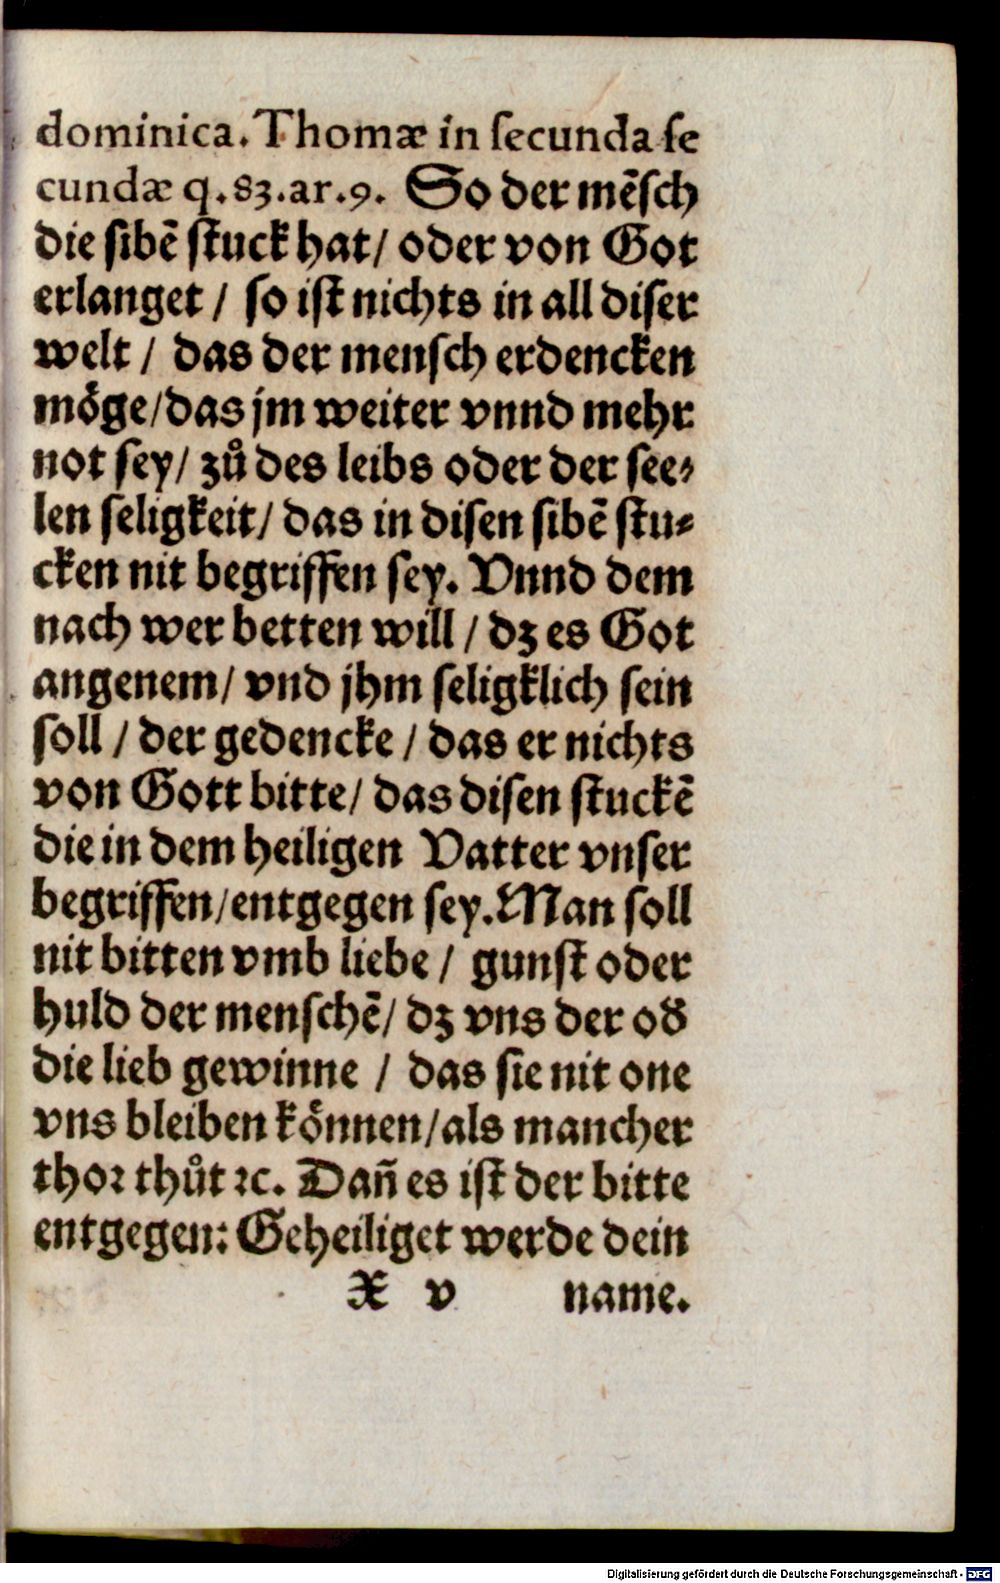 dominica. Thomæ in ſecunda ſe
cundæ q. 83. ar. 9. So der mẽſch
die ſibẽ ſtuck hat/ oder von Got
erlanget / ſo iſt nichts in all diſer
welt / das der menſch erdencken
moͤge/das jm weiter vnnd mehr
not ſey/ zů des leibs oder der ſee⸗
len ſeligkeit/ das in diſen ſibẽ ſtu⸗
cken nit begriffen ſey. Vnnd dem
nach wer betten will / dz es Got
angenem/ vnd jhm ſeligklich ſein
ſoll / der gedencke / das er nichts
von Gott bitte/ das diſen ſtuckẽ
die in dem heiligen Vatter vnſer
begriffen/entgegen ſey. Man ſoll
nit bitten vmb liebe / gunſt oder
huld der menſchẽ/ dz vns der od̕
die lieb gewinne / das ſie nit one
vns bleiben koͤnnen/als mancher
thoꝛ thůt ꝛc. Dañ es iſt der bitte
entgegen: Geheiliget werde dein
X v name.
Digitalisierung gefördert durch die Deutsche Forschungsgemeinschaft - DFG